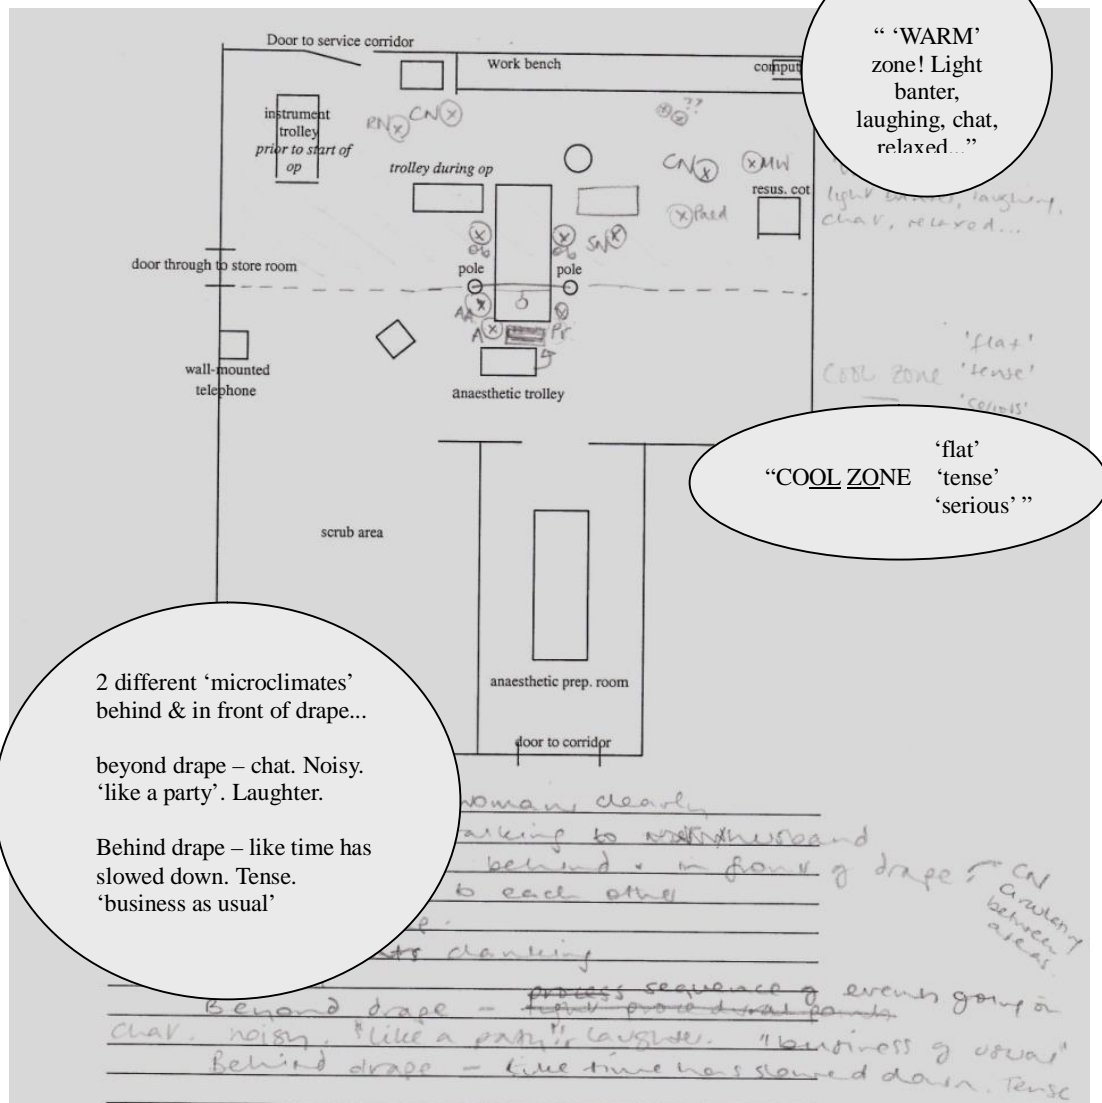 Door to service corridor
Work bench
comput
“ ‘WARM’
zone! Light
banter,
laughing, chat,
relaxed...”
instrument
trolley
prior to start of
op
RN
CN
??
trolley during op
CN
MW
resus. cot
Paed
light banter, laughing,
chat, relaxed...
SN
door through to store room
pole
pole
AA
A
Pr
wall-mounted
telephone
anaesthetic trolley
COOL ZONE
'flat'
'tense'
'serious'
“COOL ZONE
‘flat’
‘tense’
‘serious’ ”
scrub area
anaesthetic prep. room
door to corridor
2 different ‘microclimates’
behind & in front of drape...
beyond drape – chat. Noisy.
‘like a party’. Laughter.
Behind drape – like time has
slowed down. Tense.
‘business as usual’
woman, clearly
talking to husband
behind & in front of drape
CN
circulating
between
areas.
to each other
clanking
Beyond drape – process sequence of events going on
chat. noisy. "like a party", laughter. "business of usual"
Behind drape – like time has slowed down. Tense